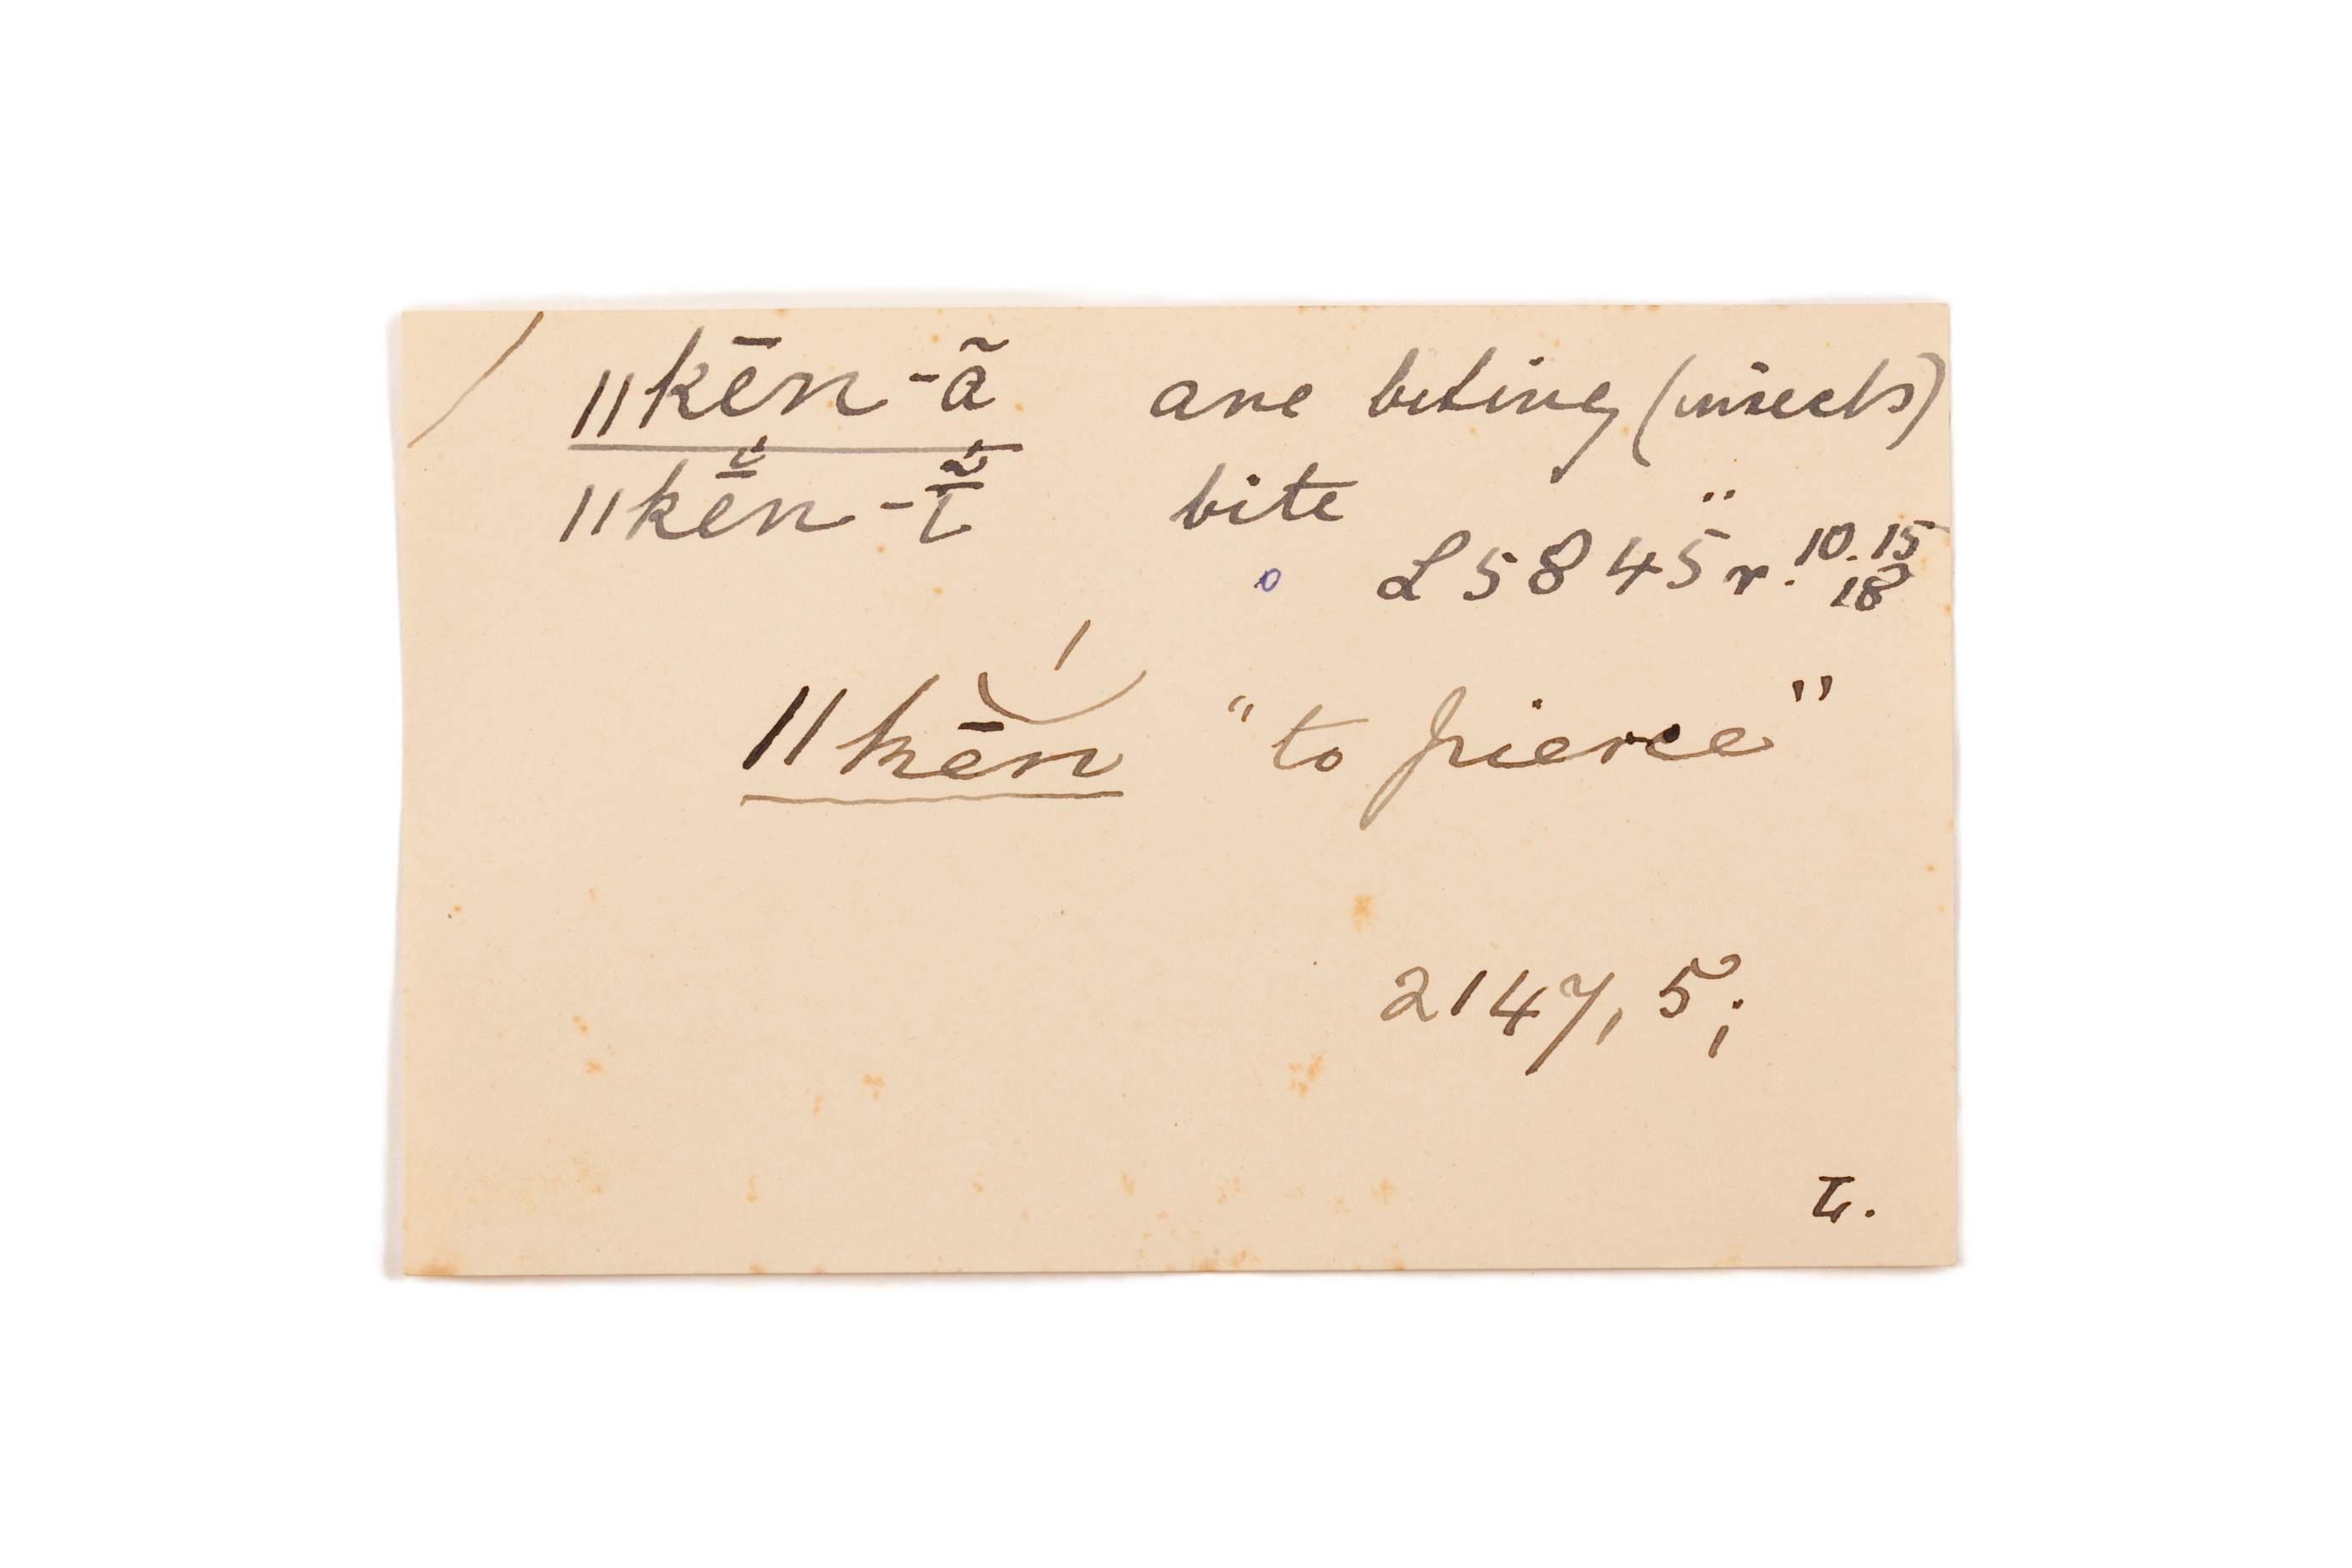 ǁkēn-ã are biting (insects)
ǁkḗn-ĩ̄ bite "
L 5845 r. 10. 15
18
ǁkēn "to pierce"
2147, 5;
L.